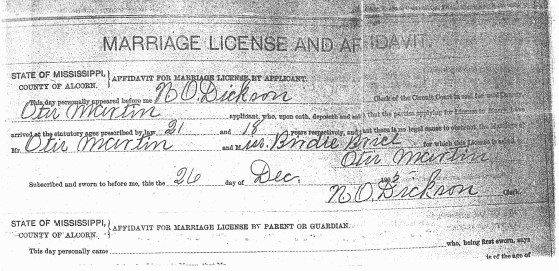 MARRIAGE LICENSE AND AFFIDAVIT
STATE OF MISSISSIPPI,
COUNTY OF ALCORN.
AFFIDAVIT FOR MARRIAGE LICENSE BY APPLICANT.
This day personally appeared before me N O. Dickson Clerk of the Circuit Court in and for
Otis Martin applicant, who, upon oath, deposeth and that the parties applying for License
arrived at the statutory age prescribed by law 21 and 18 years respectively, and that there is no legal cause to obstruct
Mr. Otis Martin and M iss. Birdie for which this License is
Otis Martin
Subscribed and sworn to before me, this the 26 day of Dec. 190
N O. Dickson Clerk
STATE OF MISSISSIPPI,
COUNTY OF ALCORN.
AFFIDAVIT FOR MARRIAGE LICENSE BY PARENT OR GUARDIAN.
This day personally came who, being first sworn, says
is of the age of